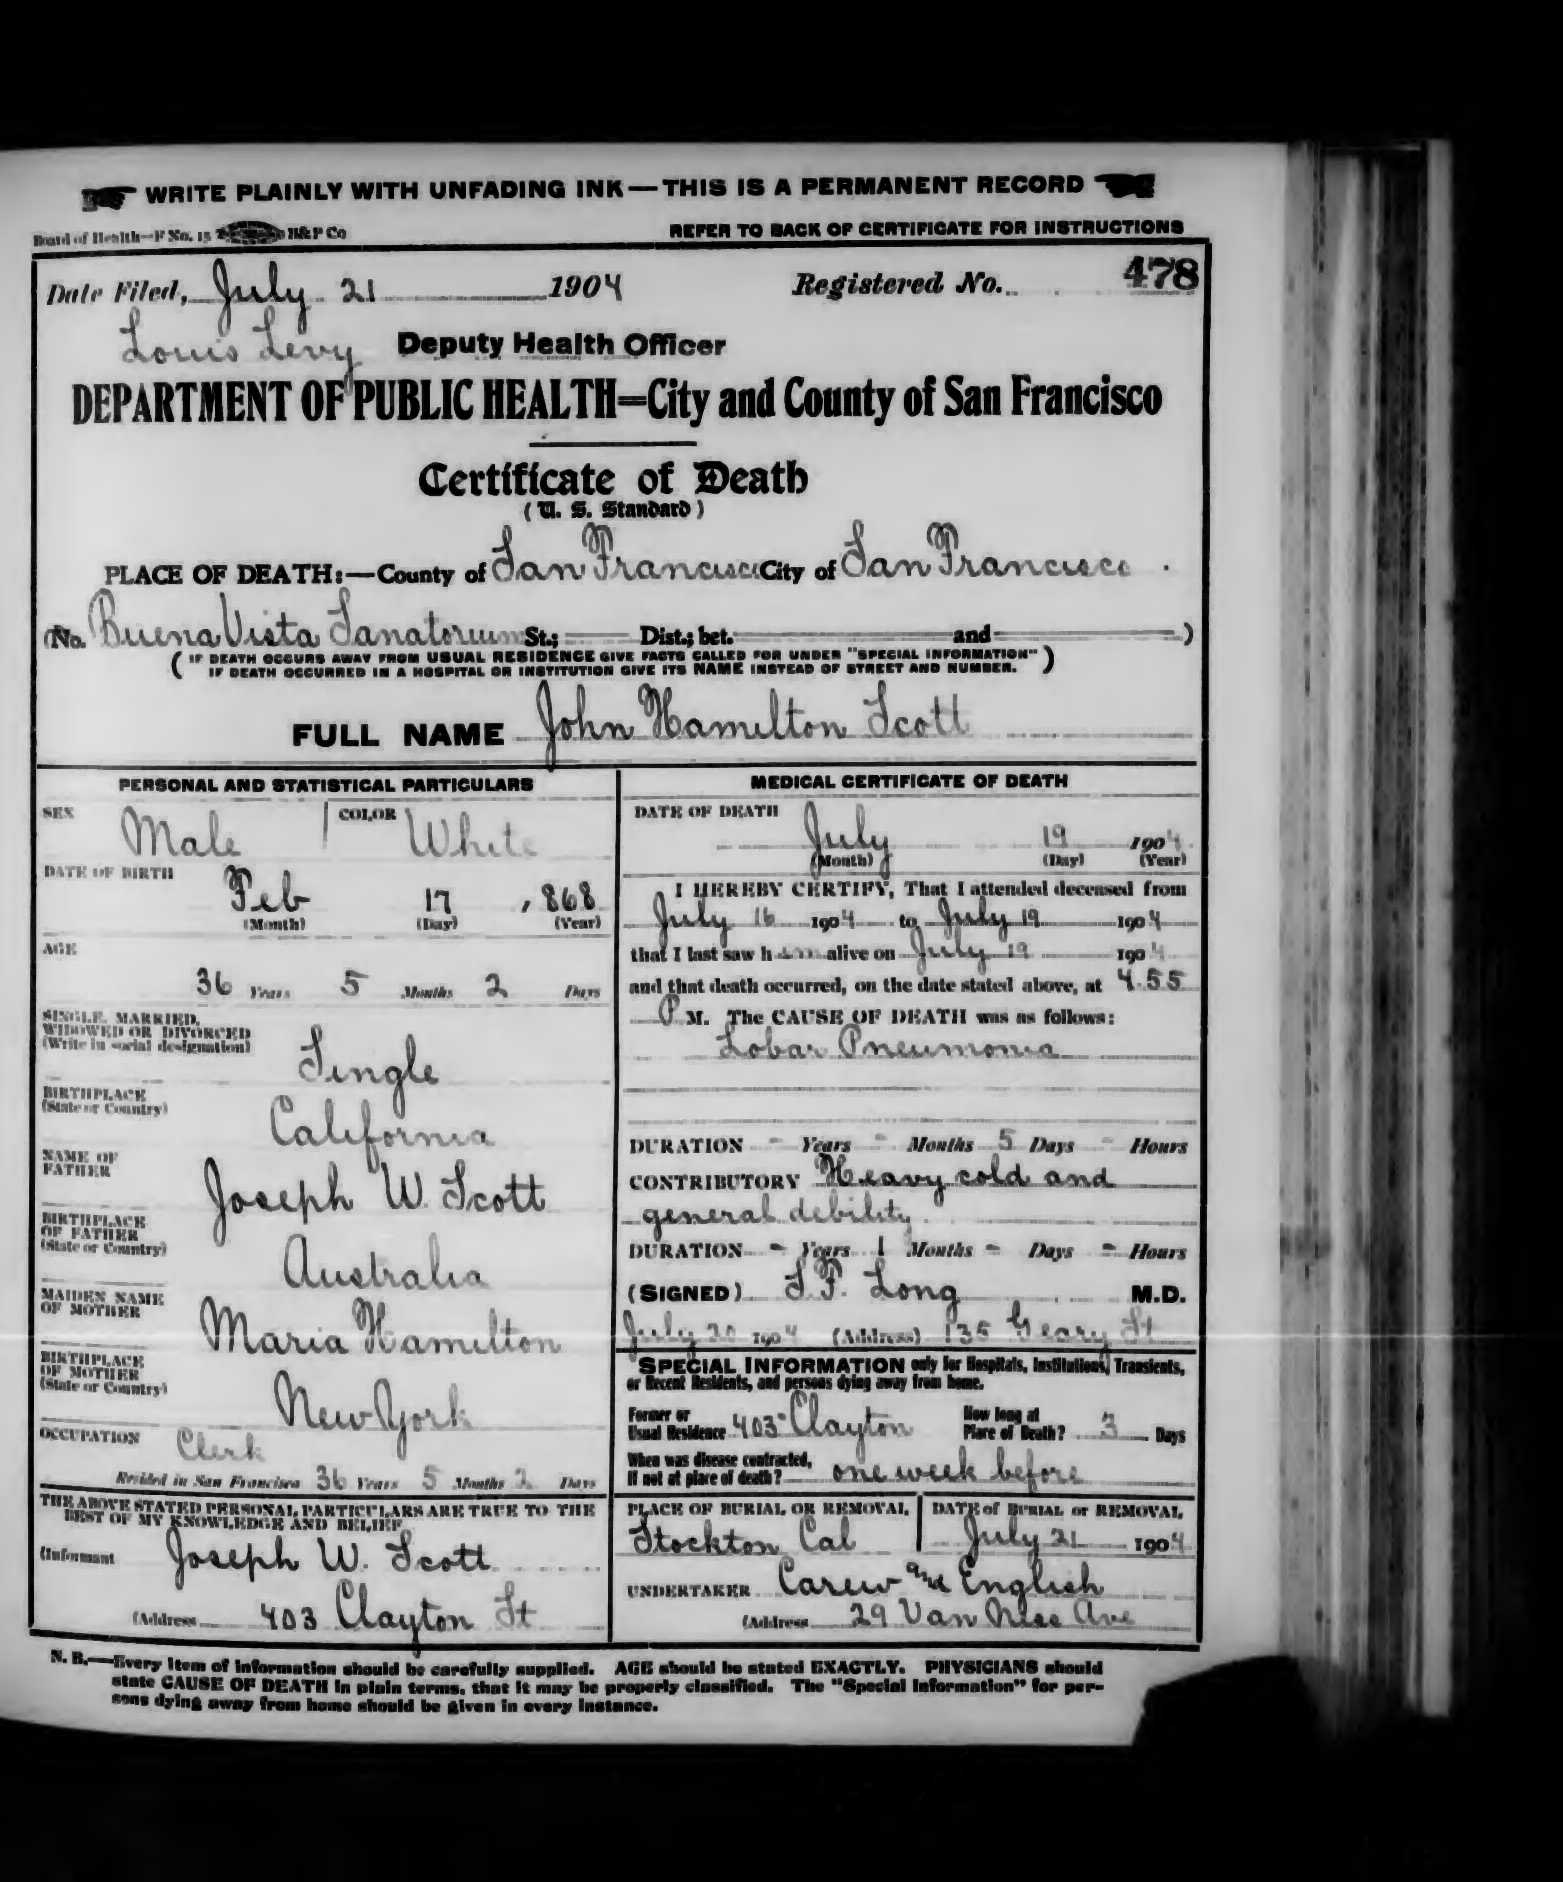 WRITE PLAINLY WITH UNFADING INK — THIS IS A PERMANENT RECORD
Board of Health—F No. 15 H&P Co REFER TO BACK OF CERTIFICATE FOR INSTRUCTIONS
Date Filed, July 21 1904 Registered No. 478
Louis Levy Deputy Health Officer
DEPARTMENT OF PUBLIC HEALTH=City and County of San Francisco
Certificate of Death
(U. S. Standard)
PLACE OF DEATH:—County of San Francisco City of San Francisco
(No. Buena Vista Sanatorium St.; Dist.; bet. and )
( IF DEATH OCCURS AWAY FROM USUAL RESIDENCE GIVE FACTS CALLED FOR UNDER "SPECIAL INFORMATION" )
IF DEATH OCCURRED IN A HOSPITAL OR INSTITUTION GIVE ITS NAME INSTEAD OF STREET AND NUMBER.
FULL NAME John Hamilton Scott
PERSONAL AND STATISTICAL PARTICULARS
SEX Male COLOR White
DATE OF BIRTH
Feb 17 , 868
(Month) (Day) (Year)
AGE
36 Years 5 Months 2 Days
SINGLE, MARRIED,
WIDOWED OR DIVORCED
(Write in social designation)
Single
BIRTHPLACE
(State or Country)
California
NAME OF
FATHER
Joseph W. Scott
BIRTHPLACE
OF FATHER
(State or Country)
Australia
MAIDEN NAME
OF MOTHER
Maria Hamilton
BIRTHPLACE
OF MOTHER
(State or Country)
New York
OCCUPATION Clerk
Resided in San Francisco 36 Years 5 Months 2 Days
THE ABOVE STATED PERSONAL PARTICULARS ARE TRUE TO THE
BEST OF MY KNOWLEDGE AND BELIEF
(Informant Joseph W. Scott
(Address 403 Clayton St
MEDICAL CERTIFICATE OF DEATH
DATE OF DEATH
July 19 1904
(Month) (Day) (Year)
I HEREBY CERTIFY, That I attended deceased from
July 16 1904 to July 19 1904
that I last saw him alive on July 19 1904
and that death occurred, on the date stated above, at 4.55
P M. The CAUSE OF DEATH was as follows:
Lobar Pneumonia
DURATION - Years - Months 5 Days - Hours
CONTRIBUTORY Heavy cold and
general debility
DURATION - Years 1 Months - Days - Hours
(SIGNED) S.F. Long M.D.
July 20 1904 (Address) 135 Geary St
SPECIAL INFORMATION only for Hospitals, Institutions, Transients,
or Recent Residents, and persons dying away from home.
Former or
Usual Residence 403 Clayton How long at
Place of Death? 3 Days
When was disease contracted,
If not at place of death? one week before
PLACE OF BURIAL OR REMOVAL DATE of BURIAL or REMOVAL
Stockton Cal July 21 1904
UNDERTAKER Carew and English
(Address 29 Van Ness Ave
N. B.—Every item of information should be carefully supplied. AGE should be stated EXACTLY. PHYSICIANS should
state CAUSE OF DEATH in plain terms, that it may be properly classified. The "Special Information" for per-
sons dying away from home should be given in every instance.